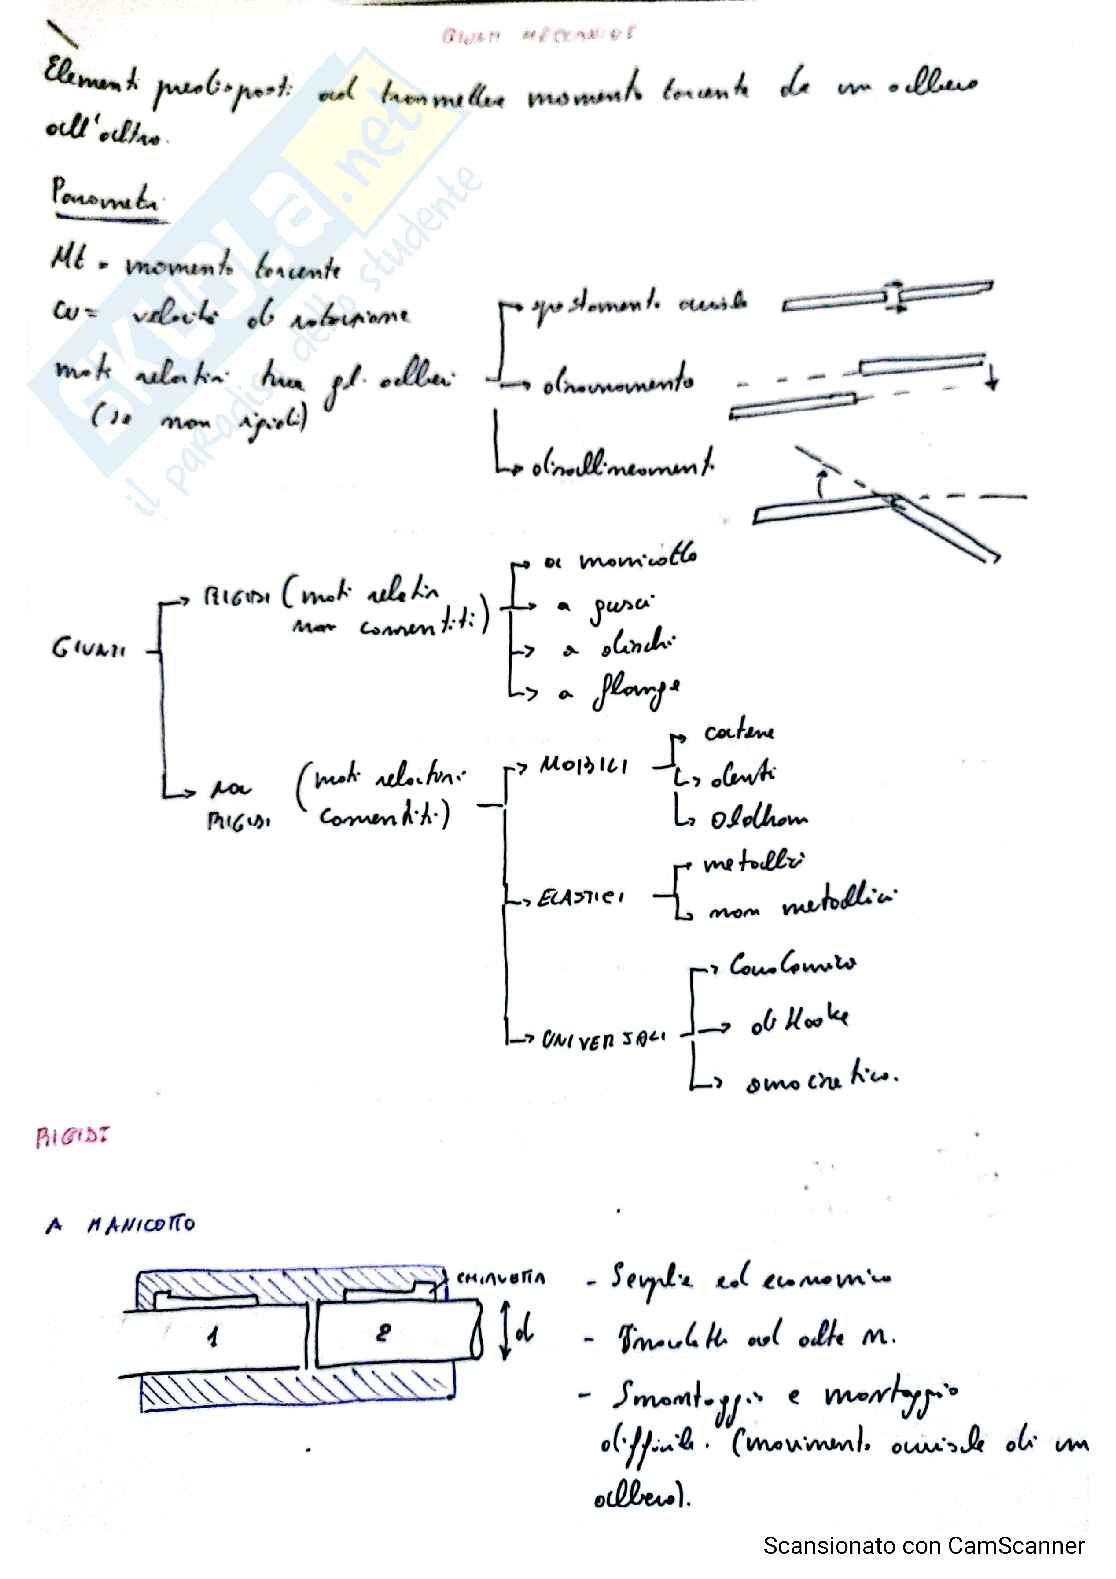 GIUNTI MECCANICI
Elementi predisposti ad trasmettere momento torcente da un albero
all'altro.
Parametri
Mt = momento torcente
ω = velocità di rotazione
moti relativi tra gli alberi
(se non rigidi)
spostamento assiale
disassamento
disallineamenti
GIUNTI
RIGIDI (moti relativi
non consentiti)
a manicotto
a gusci
a dischi
a flange
NON
RIGIDI
(moti relativi
consentiti)
MOBILI
catene
denti
Oldham
ELASTICI
metallici
non metallici
UNIVERSALI
Cardanico
di Hooke
omocinetico.
RIGIDI
A MANICOTTO
CHIAVETTA
1
2
d
- Semplice ed economico
- ad alte n.
- Smontaggio e montaggio
difficile. (movimento assiale di un
albero).
SKUOLA.net
il paradiso dello studente
Scansionato con CamScanner